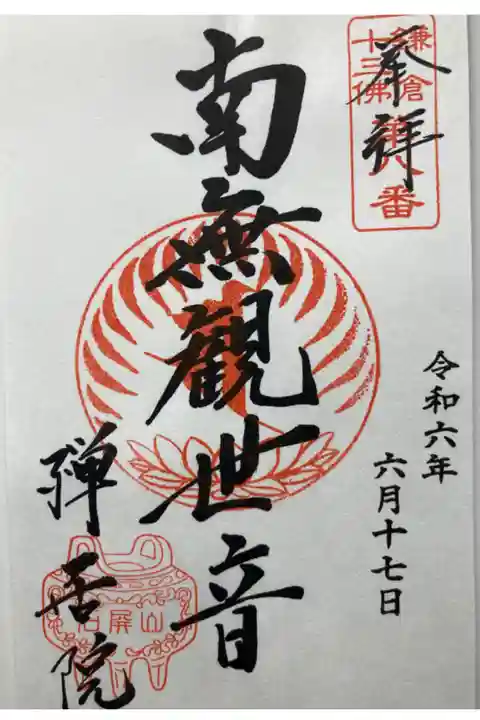 鎌倉
十三佛
第八番
奉拝
令和六年
六月十七日
南無観世音
禅居院
石屏山